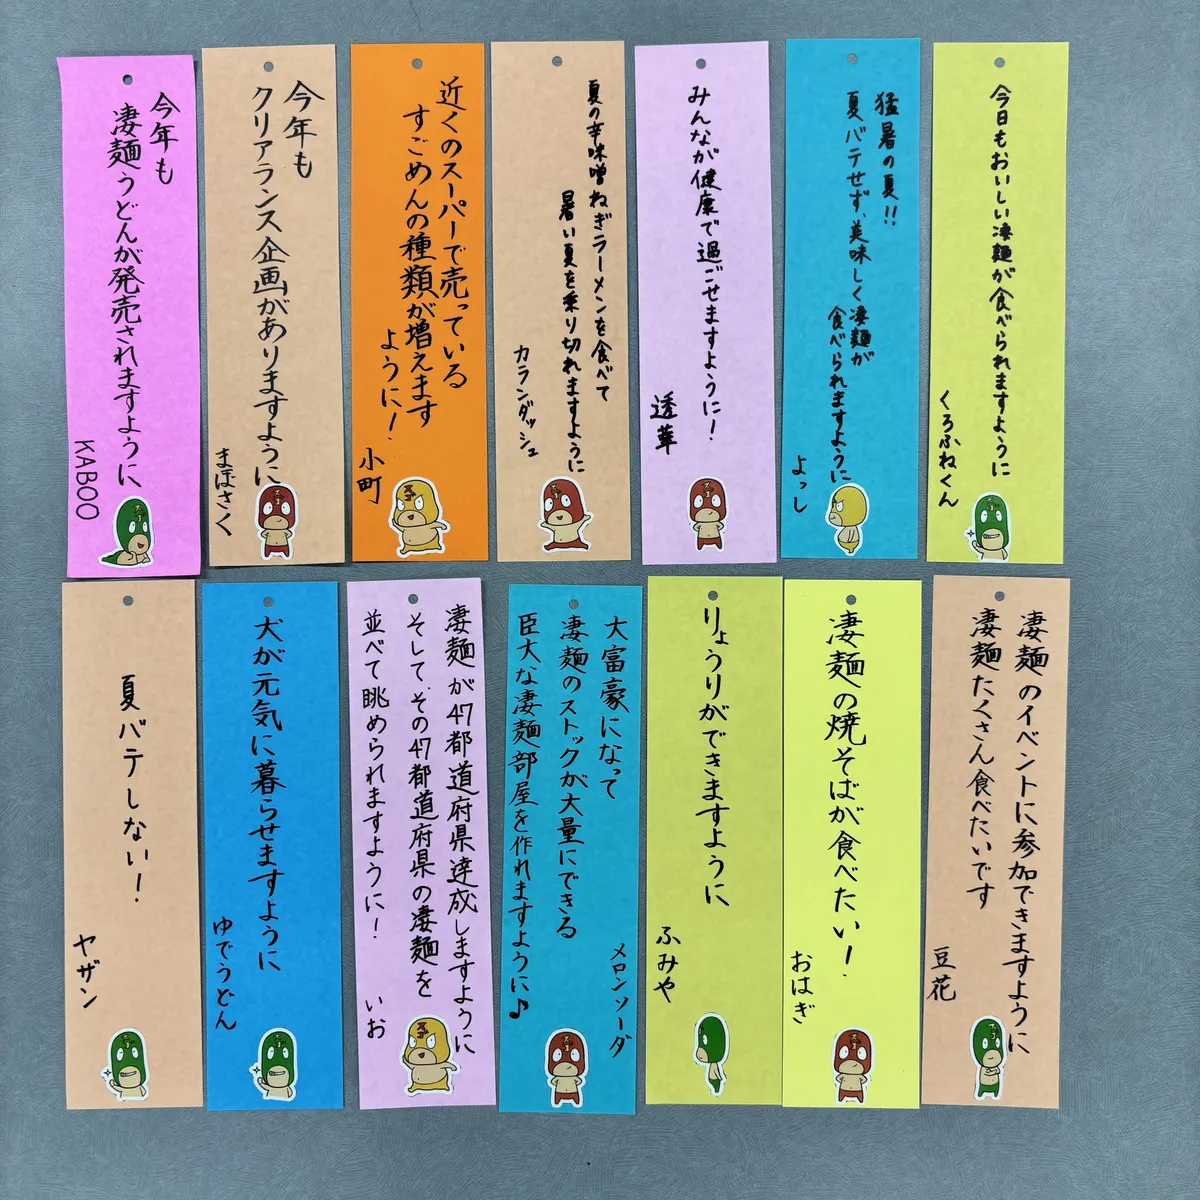 今年も
凄麺うどんが発売されますように
KABOO
今年も
クリアランス企画がありますように
まほさく
近くのスーパーで売っている
すごめんの種類が増えます
ように!
小町
夏の辛味噌ねぎラーメンを食べて
暑い夏を乗り切れますように
カランダッシュ
みんなが健康で過ごせますように!
透華
猛暑の夏!!
夏バテせず、美味しく凄麺が
食べられますように
よっし
今日もおいしい凄麺が食べられますように
くろふねくん
夏バテしない!
ヤザン
犬が元気に暮らせますように
ゆでうどん
凄麺が47都道府県達成しますように
そして、その47都道府県の凄麺を
並べて眺められますように!
いお
大富豪になって
凄麺のストックが大量にできる
臣大な凄麺部屋を作れますように♪
メロンソーダ
りょうりができますように
ふみや
凄麺の焼そばが食べたい!
おはぎ
凄麺のイベントに参加できますように
凄麺たくさん食べたいです
豆花